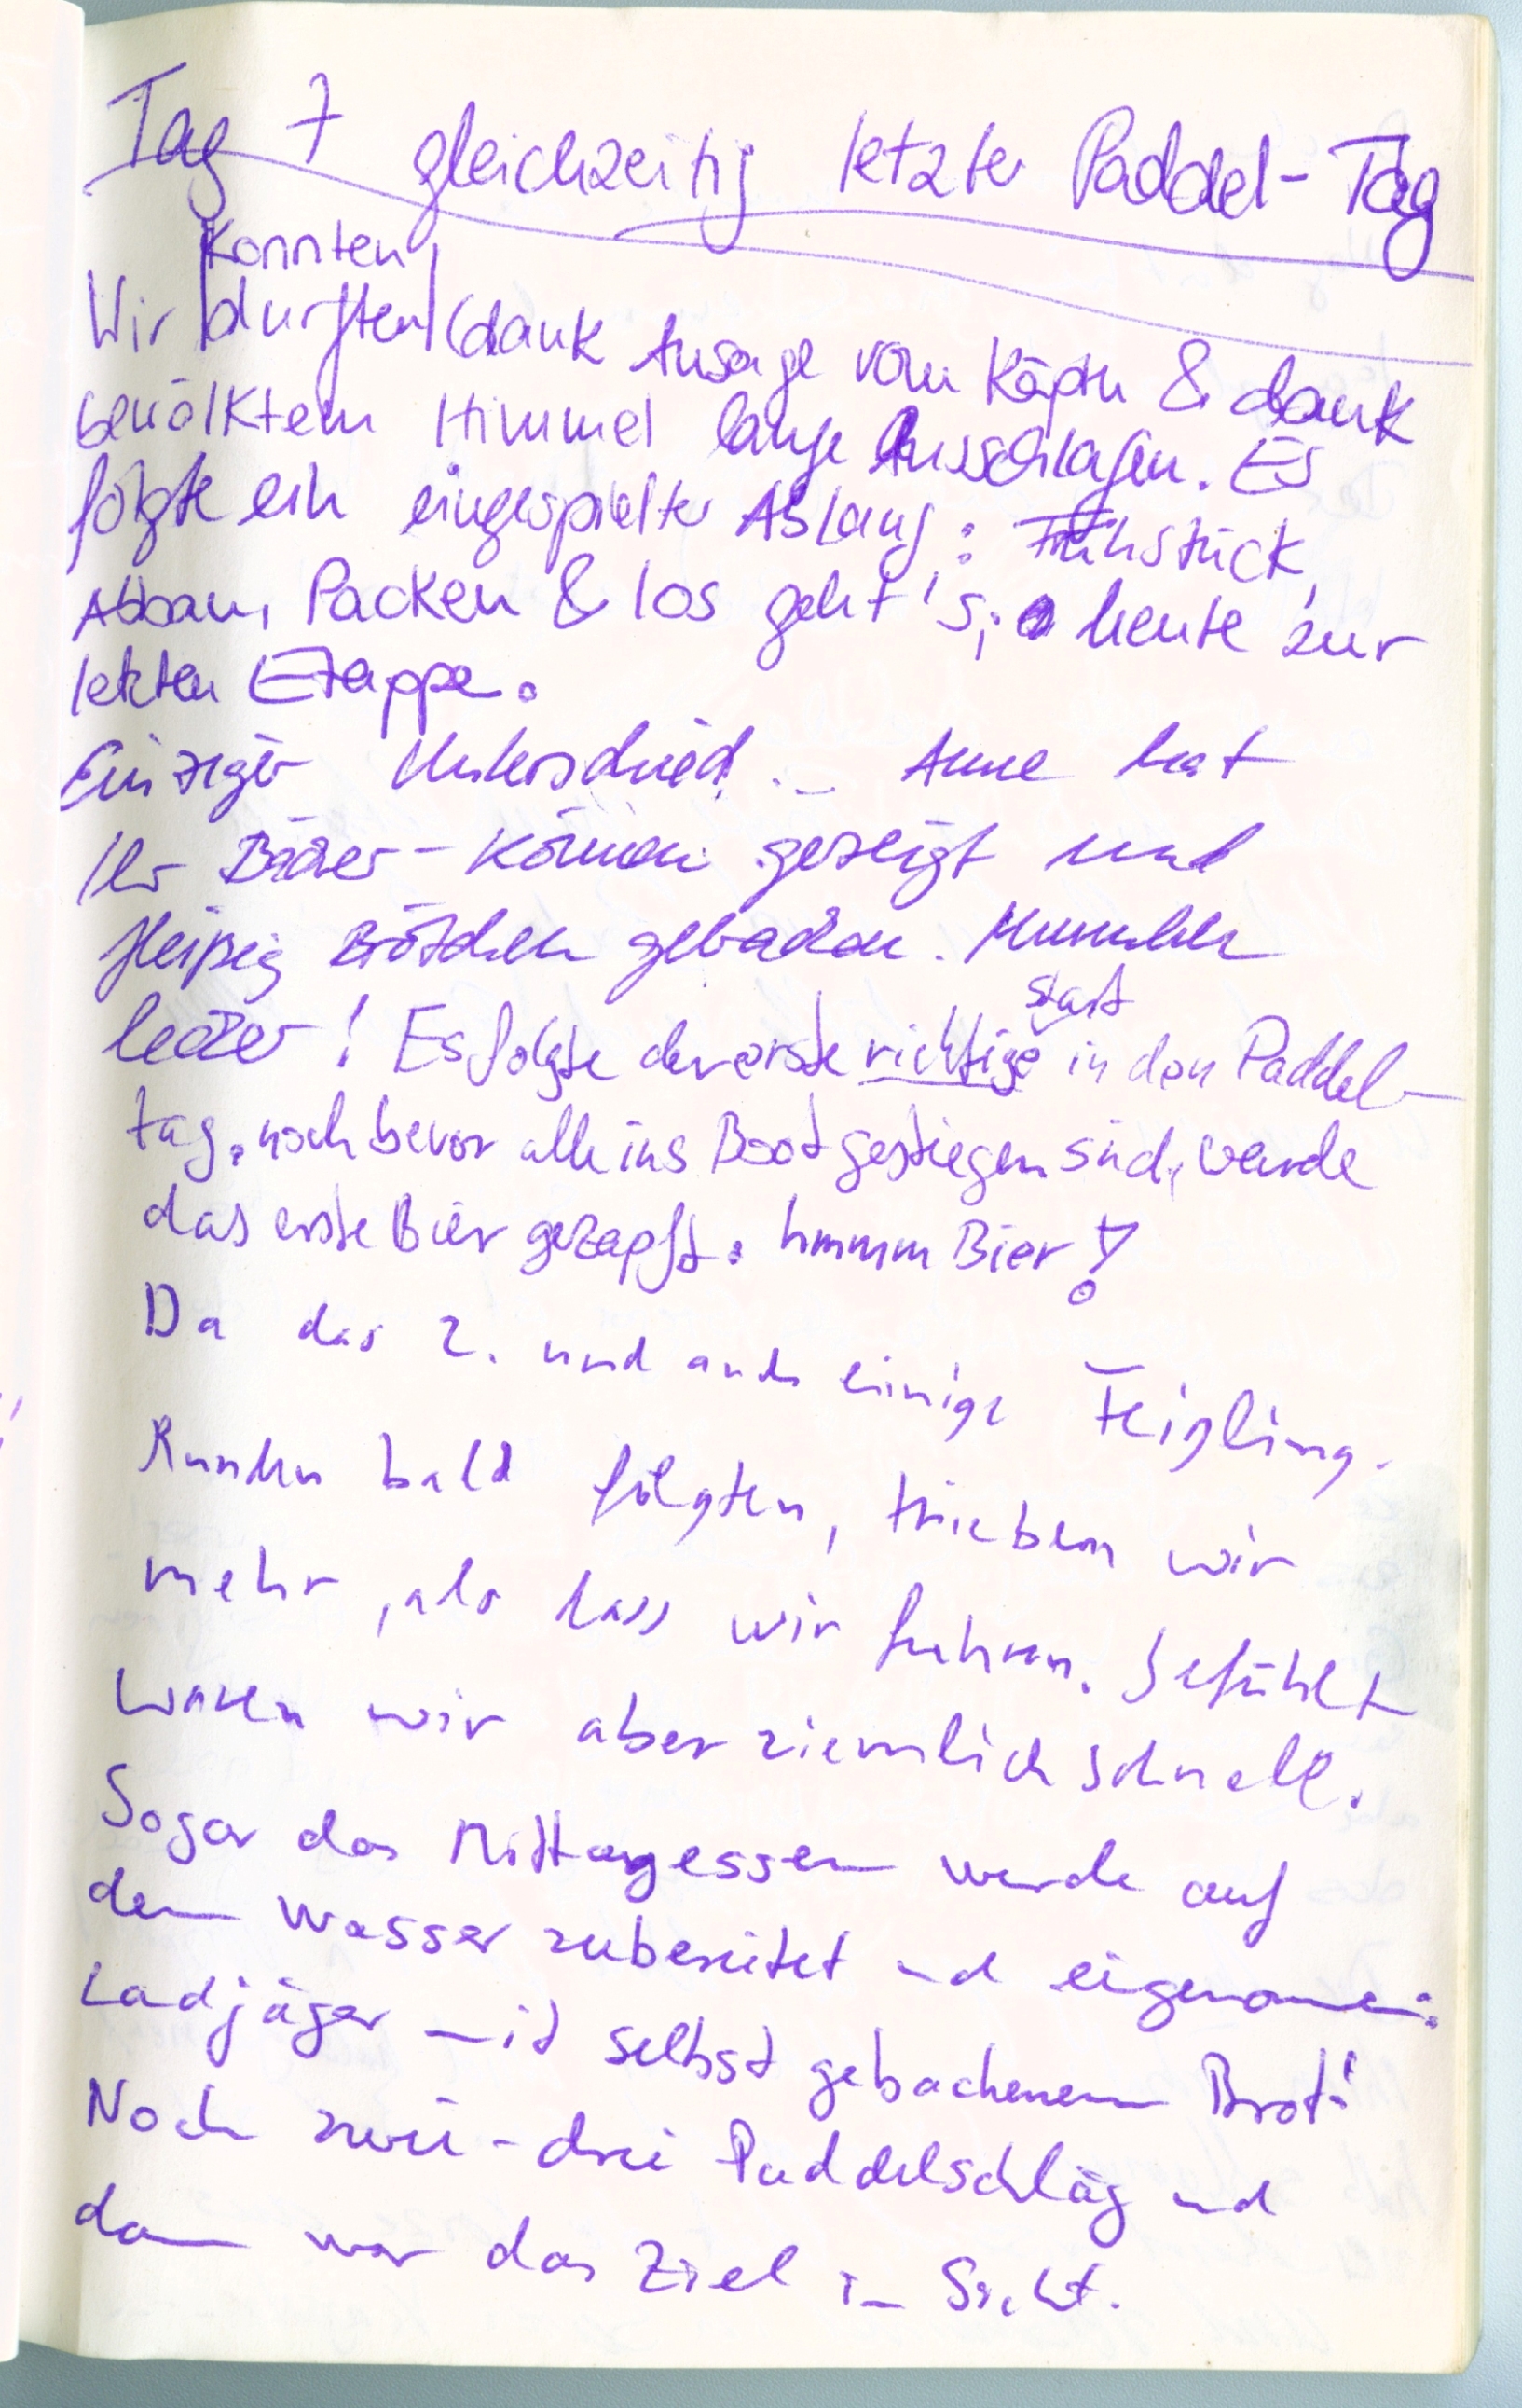 Tag 7 gleichzeitig letzter Paddel-Tag
Konnten
Wir |durften| (dank Ansage vom Käptn & dank
bewölktem Himmel lange Ausschlafen. Es
folgte ein eingespielter Ablauf: Frühstück,
Abbau, Packen & los geht's, heute zur
letzten Etappe.
Einziger Unterschied: – Anne hat
Ihr Bäcker-Können gezeigt und
fleißig Brötchen gebacken. Mmmhhh
lecker! Es folgte der erste richtige in den Paddel-
start
tag, noch bevor alle ins Boot gestiegen sind, wurde
das erste Bier gezapft. hmmm Bier!
Da das 2. und auch einige Feigling-
Runden bald folgten, trieben wir
mehr, als dass wir fuhren. Gefühlt
waren wir aber ziemlich schnell.
Sogar das Mittagessen wurde auf
dem Wasser zubereitet und eigenomen:
Ladjäger mit selbst gebachenem Brot!
Noch zwei-drei Paddelschläg und
dann war das Ziel in Sicht.